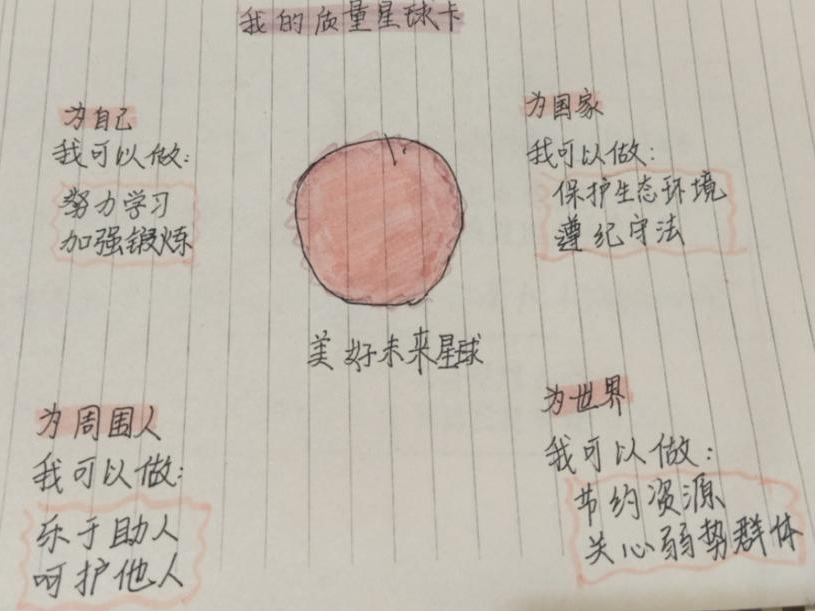 我的质量星球卡
为自己
我可以做:
努力学习
加强锻炼
为国家
我可以做:
保护生态环境
遵纪守法
美好未来星球
为周围人
我可以做:
乐于助人
呵护他人
为世界
我可以做:
节约资源
关心弱势群体